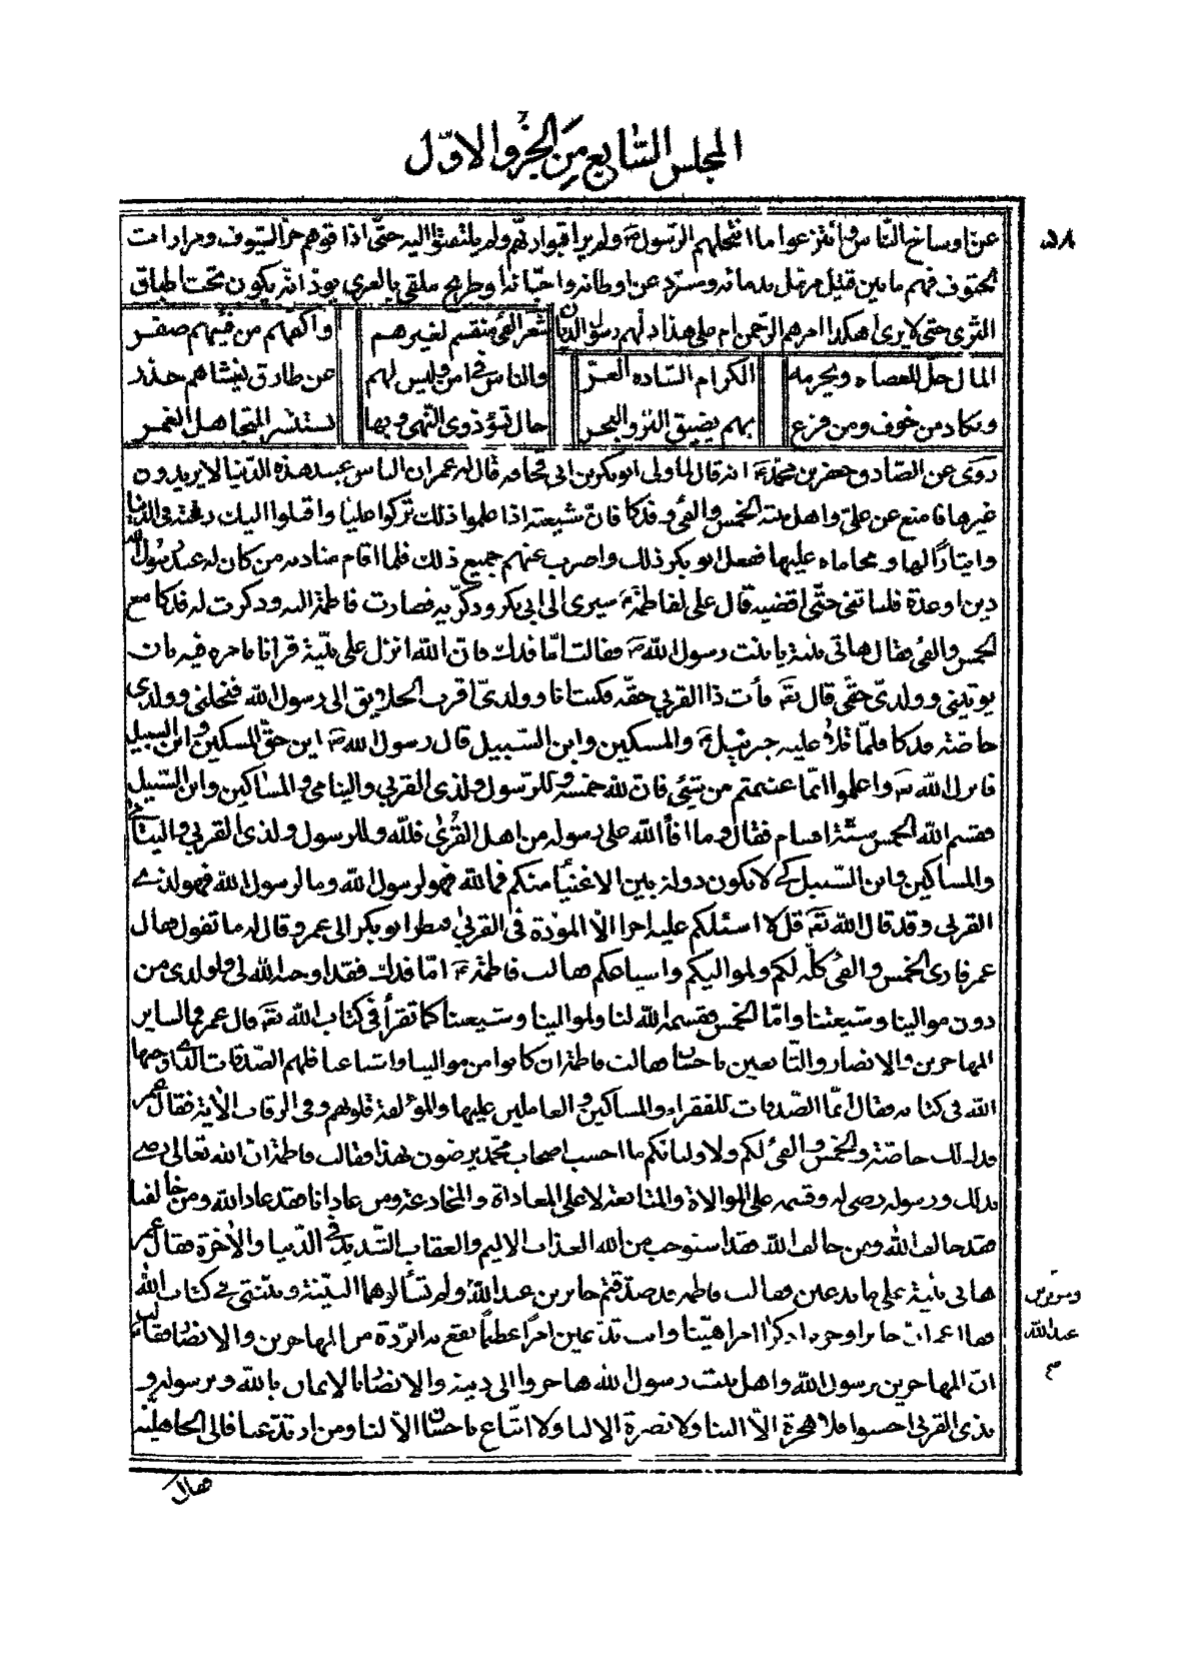 المجلس السابع من الجزو الاول
٥٨
عن اوساخ الناس وانتزعوا ما انحلهم الرسول ولم يراقبوا ولم يلتفتوا اليه حتى اذاقوهم حر السيوف ومرارات
الحتوف فهم ما بين قتيل مرمل بدمائه ومشرد عن اوطانه واحبائه او طريح ملقى بالعرى يود انه يكون تحت اطباق
الثرى حتى لا يرى هكذا امرهم الرحمن ام على هذا دلهم رسول الديان شعر الفئ منقسم لغيرهم واكفهم من فيئهم صفر
المال حل للعصاه ويحرمه الكرام الساده الغر والناس فى امن وليس لهم عن طارق يغشاهم حذر
ويكاد من خوف ومن فزع بهم يضيق البر والبحر حال تسؤ ذوى النهى وبها يستبشر المتجاهل الغمر
روى عن الصادق جعفر بن محمد انه قال لما ولى ابو بكر بن ابى قحافه قال له عمر ان الناس عبيد هذه الدنيا لا يريدون
غيرها فامنع عن على واهل بيته الخمس والفئ وفدكا فان شيعته اذا علموا ذلك تركوا عليا واقبلوا اليك رغبة فى الدنيا
وايثارا لها ومحاماه عليها ففعل ابو بكر ذلك واصرف عنهم جميع ذلك فلما اقام مناديه من كان له عند رسول الله
دين او عدة فليأتنى حتى اقضيه قال على لفاطمة سيرى الى ابى بكر وذكريه فصارت فاطمة اليه وذكرت له فدكا مع
الخمس والفئ فقال هاتى بينة يا بنت رسول الله فقالت اما فدك فان الله انزل على نبيه قرانا يامره فيه بان
يؤتينى وولدى حقى قال فأت ذا القربى حقه فكنت انا وولدى اقرب الخلايق الى رسول الله فنحلنى وولدى
خاصة فدكا فلما تلا عليه جبرئيل والمسكين وابن السبيل قال رسول الله اين حق المسكين وابن السبيل
فانزل الله واعلموا انما غنمتم من شئ فان لله خمسه وللرسول ولذى القربى واليتامى والمساكين وابن السبيل
فقسم الله الخمس ستة اقسام فقال وما افاء الله على رسوله من اهل القرى فلله وللرسول ولذى القربى واليتامى
والمساكين وابن السبيل كى لا يكون دولة بين الاغنياء منكم فما لله فهو لرسول الله وما لرسول الله فهو لذى
القربى وقد قال الله قل لا اسئلكم عليه اجرا الا المودة فى القربى فنظر ابو بكر الى عمر وقال له ما تقول فقال
عمر فاذى الخمس والفئ كله لكم ولمواليكم واشياعكم فقالت فاطمة اما فدك فقد اوجبه الله لى ولولدى من
دون موالينا وشيعتنا واما الخمس فقسمه الله لنا ولموالينا وشيعتنا كما تقرأ فى كتاب الله قال عمر فما لساير
المهاجرين والانصار والتابعين باحسان فقالت فاطمة ان كانوا من موالينا واشياعنا فلهم الصدقات التى اوجبها
الله فى كتابه فقال انما الصدقات للفقراء والمساكين والعاملين عليها والمؤلفة قلوبهم وفى الرقاب الاية فقال عمر
فدك لك خاصة والخمس والفئ لكم ولاوليائكم ما احسب اصحاب محمد يرضون بهذا فقالت فاطمة ان الله تعالى رضى
بذلك ورسوله رضى له وقسمه على الموالاة والمتابعة لا على المعاداة والمخادعة ومن عادانا فقد عاد الله ومن خالفنا
فقد خالف الله ومن خالف الله فقد استوجب من الله العذاب الاليم والعقاب الشديد فى الدنيا والاخرة فقال عمر
هاتى بينة على ما تدعين فقالت فاطمة قد صدقتم جابر بن عبد الله ولم تسألوهما البينة وبينتى فى كتاب الله
وجرير بن
عبد الله
فقال عمر ان جابرا وجرير اذكرا امرا هينا وانت تدعين امرا عظيما يقع به الردة من المهاجرين والانصار فقالت
ان المهاجرين برسول الله واهل بيت رسول الله هاجروا الى دينه والانصار بالايمان بالله وبرسوله و
بذى القربى احسنوا فلا هجرة الا الينا ولا نصرة الا لنا ولا اتباع باحسان الا لنا ومن ارتد عنا فالى الجاهلية
فقال